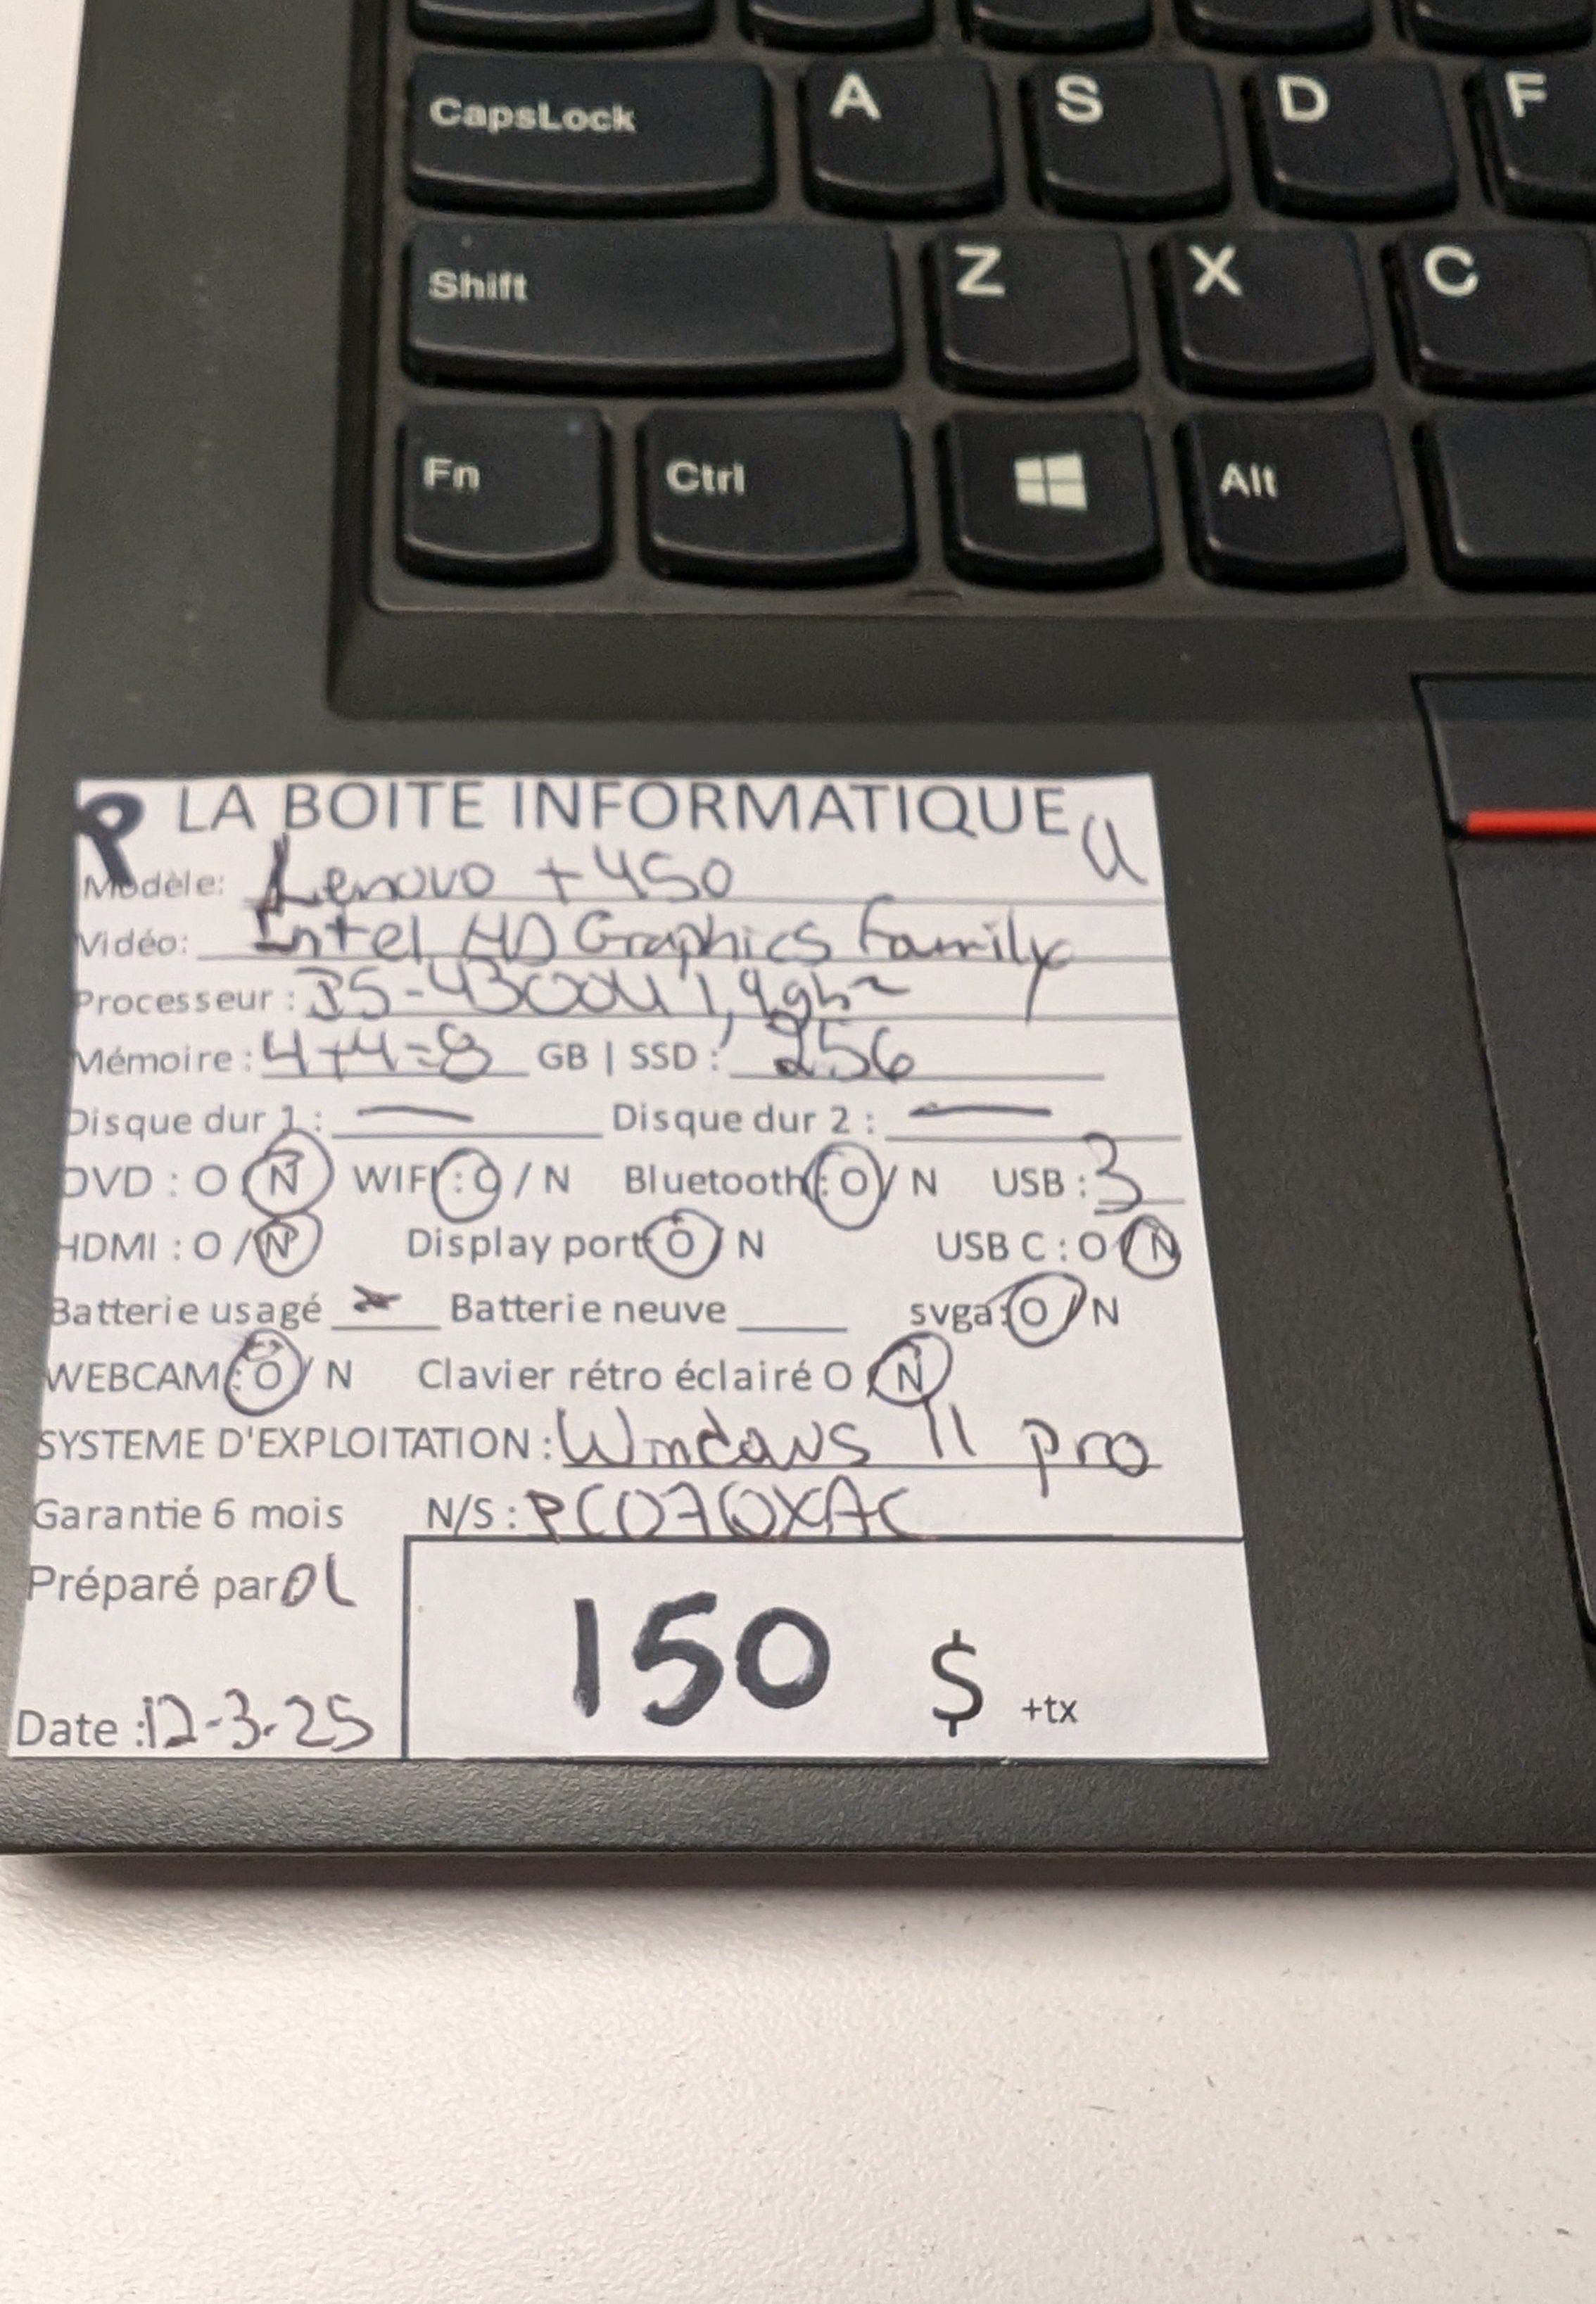 CapsLock A S D F
Shift Z X C
Fn Ctrl Alt
LA BOITE INFORMATIQUE
Modèle: Lenovo t450
Vidéo: Intel HD Graphics Family
Processeur : I5-4300U 1,9ghz
Mémoire : 4+4=8 GB | SSD : 256
Disque dur 1 : — Disque dur 2 : —
DVD : O / N WIFI : O / N Bluetooth : O / N USB : 3
HDMI : O / N Display port O / N USB C : O / N
Batterie usagé x Batterie neuve ____ svga: O / N
WEBCAM : O / N Clavier rétro éclairé O / N
SYSTEME D'EXPLOITATION : Windows 11 pro
Garantie 6 mois N/S : PC070XAC
Préparé par OL
150 $ +tx
Date : 12-3-25